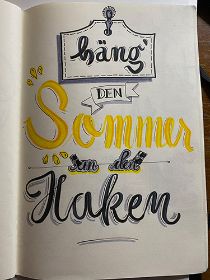 häng'
DEN
Sommer
an den
Haken